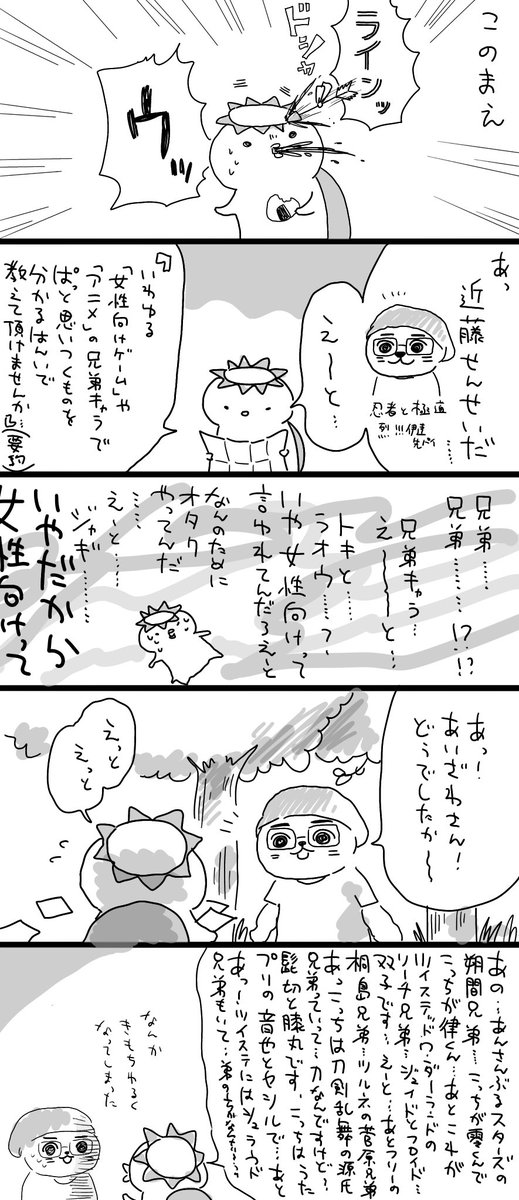 このまえ
ライン
ドシャ
ヴッ
あっ
近藤せんせいだ
……
忍者と極道
烈!!!伊達先パイ
えーと…
『いわゆる
「女性向けゲーム」や
「アニメ」の兄弟キャラで
ぱっと思いつくものを
分かるはんいで
教えて頂けませんか…』(要約)
兄弟……
兄弟………!?!?
兄弟キャラ…
えーーーと…
トキと……
ラオウ……?
いや女性向けって
言われてんだろえーと
なんのために
オタク
やってんだ
……
えーと……
ジャギ………
いやだから
女性向けって
あっ!
あいざわさん!
どうでしたか〜〜
えっと
えっと
あの…あんさんぶるスターズの
朔間兄弟…こっちが零くんで
こっちが律くん…あとこれが
ツイステッドワンダーランドの
リーチ兄弟…ジェイドとフロイド…
双子です…えーと…あとフリーの
桐島兄弟…ツルネの菅原兄弟
あっこっちは刀剣乱舞の源氏
兄弟っていって…刀なんですけど…?
髭切と膝丸です、こっちはうた
プリの音也とセシルで…あと
あっーツイステにはシュラウド
兄弟もいて…弟の
なんか
きもちわるく
なってしまった